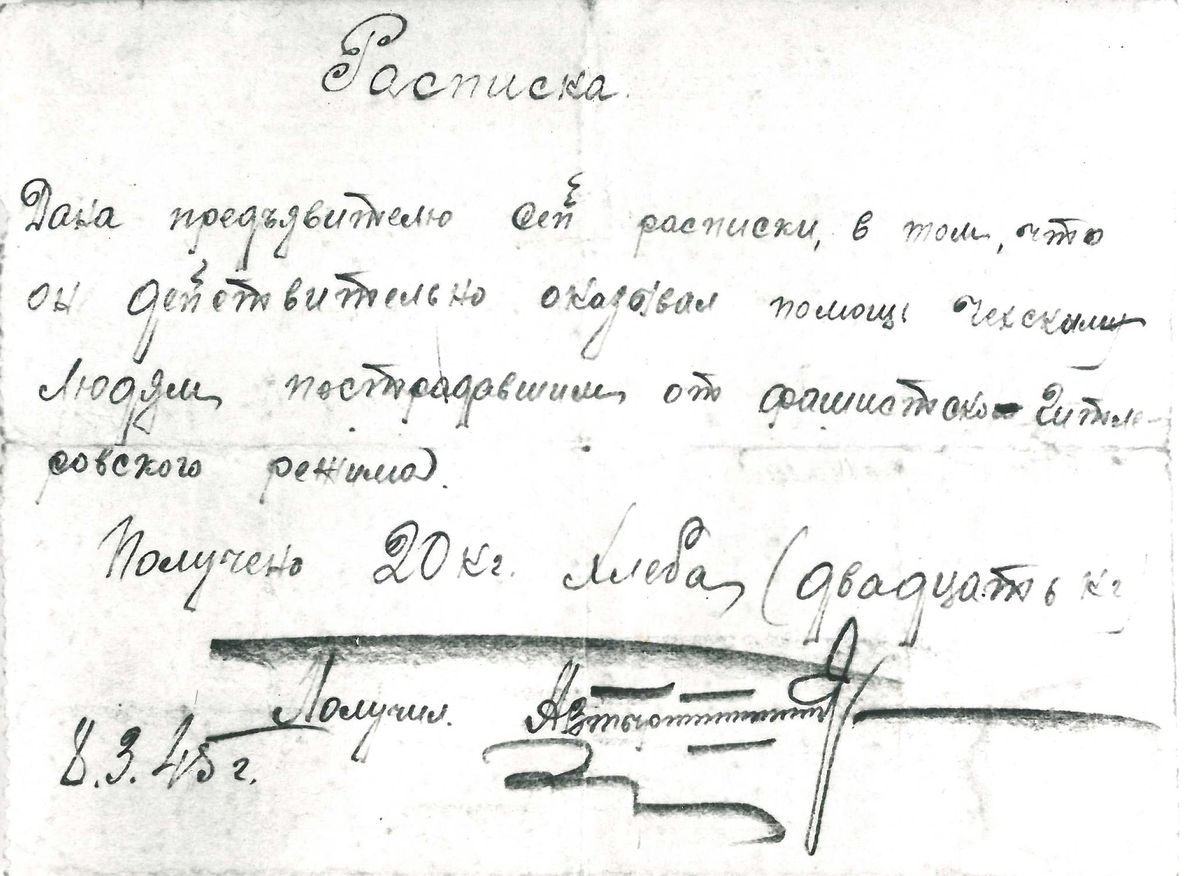 Расписка.
Дана предъявителю сей расписки, в том, что
он действительно оказывал помощь Чехским
людям, пострадавшим от фашистско- Гитле-
ровского режима.
Получено 20 кг. хлеба, (двадцать кг)
Получил.
8.3.45 г.